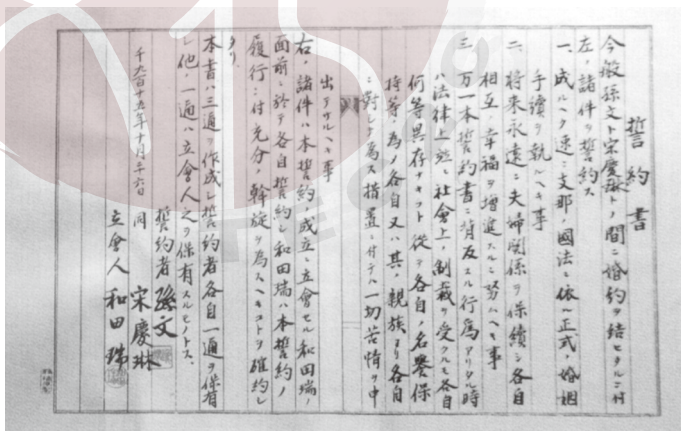 誓約書
今般孫文ト宋慶琳トノ間ニ婚約ヲ結ヒタルニ付
左ノ諸件ヲ誓約ス
一、成ルヘク速ニ支那ノ國法ニ依ル正式ノ婚姻
手續ヲ執ルヘキ事
二、將來永遠ニ夫婦関係ヲ保續シ各自
相互ノ幸福ヲ増進スルニ努ムヘキ事
三、万一本誓約書ニ背反スル行為アリタル時
ハ法律上並ニ社會上ノ制裁ヲ受クルモ各自
何等異存ナキコト従テ各自ノ名譽保
持等ノ為メ各自又ハ其ノ親族ヨリ各自
ニ對シテ為ス措置ニ付テハ一切苦情ヲ申
出テサルヘキ事
右ノ諸件ハ本誓約ノ成立ニ立會セル和田瑞ノ
面前ニ於テ各自誓約シ和田瑞ハ本誓約ノ
履行ニ付充分ノ斡旋ヲ為スヘキコトヲ確約シ
タリ
本書ハ三通ヲ作成シ誓約者各自一通ヲ保有
シ他ノ一通ハ立會人之ヲ保有スルモノトス、
誓約者 孫文
千九百十五年十月二十六日 同 宋慶琳
立會人 和田瑞